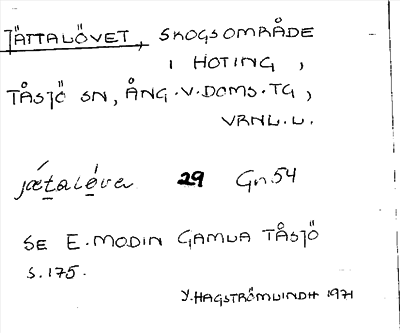 JÄTTALÖVET, SKOGSOMRÅDE
I HOTING,
TÅSJÖ SN, ÅNG.V.DOMS.TG,
VRNL.L.
jætalǿva 29 Gn.54
SE E.MODIN GAMLA TÅSJÖ
S.175.
Y.HAGSTRÖMLINDH 1971